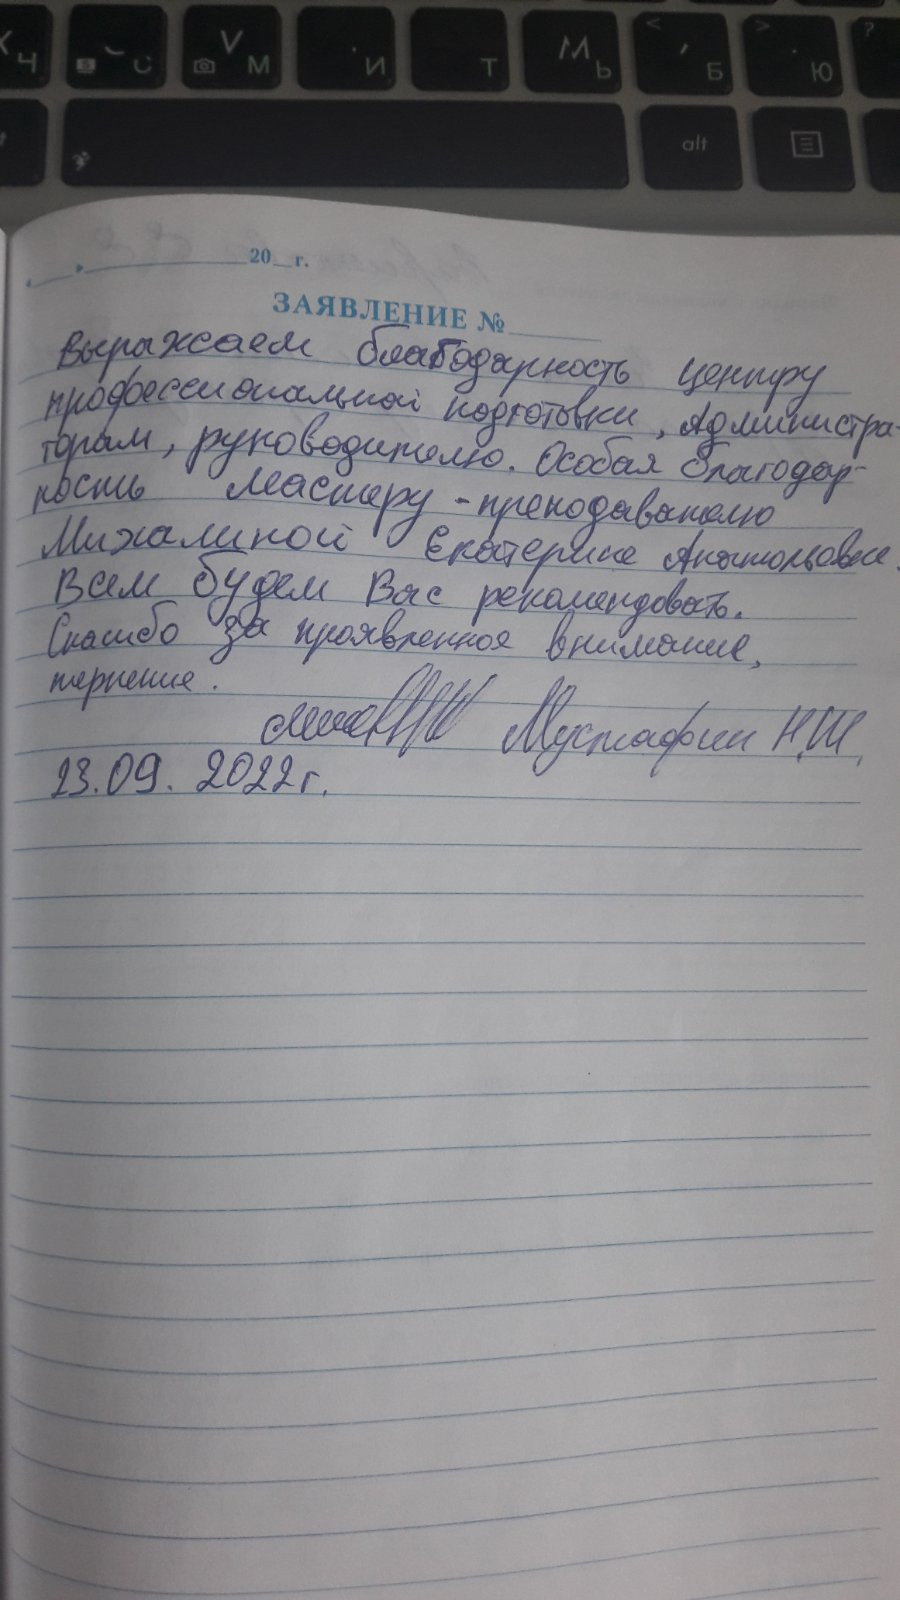 Ч С V М И Т М Ь < , Б > . Ю ?
alt
20 г.
ЗАЯВЛЕНИЕ №
Выражаем благодарность центру
профессиональной подготовки, Администра-
торам, руководителю. Особая благодар-
ность Мастеру-преподавателю
Михалиной Екатерине Анатольевне.
Всем будем Вас рекомендовать.
Спасибо за проявленное внимание,
терпение.
Мустафин Н.Ш.
23.09.2022г.